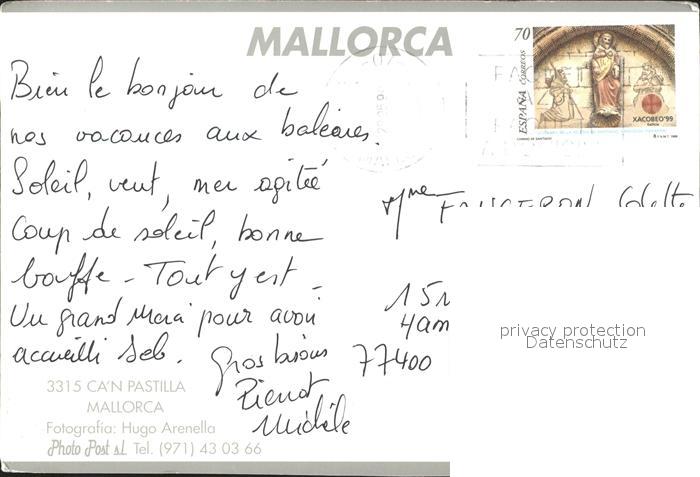 MALLORCA
70
ESPAÑA CORREOS
XACOBEO'99
Galicia
CAMINO DE SANTIAGO
Bien le bonjour de
nos vacances aux baléares.
Soleil, vent, mer agitée
Coup de soleil, bonne
bouffe - Tout y est -
Un grand Merci pour avoir
accueilli Seb. Gros bisous
Pierrot
Michèle
Mme Colette
77400
privacy protection
Datenschutz
3315 CA'N PASTILLA
MALLORCA
Fotografía: Hugo Arenella
Photo Post s.l. Tel. (971) 43 03 66